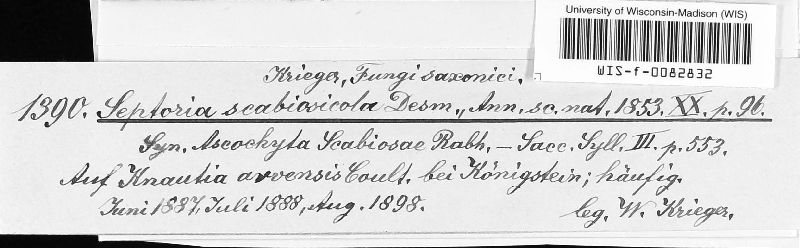 University of Wisconsin-Madison (WIS)
WIS-f-0082832
Krieger, Fungi saxonici.
1390. Septoria scabiosicola Desm., Ann. sc. nat. 1853. XX. p. 96.
Syn. Ascochyta Scabiosae Rabh. – Sacc. Syll. III. p. 553.
Auf Knautia arvensis Coult. bei Königstein; häufig.
Juni 1887, Juli 1888, Aug. 1898.
leg. W. Krieger.